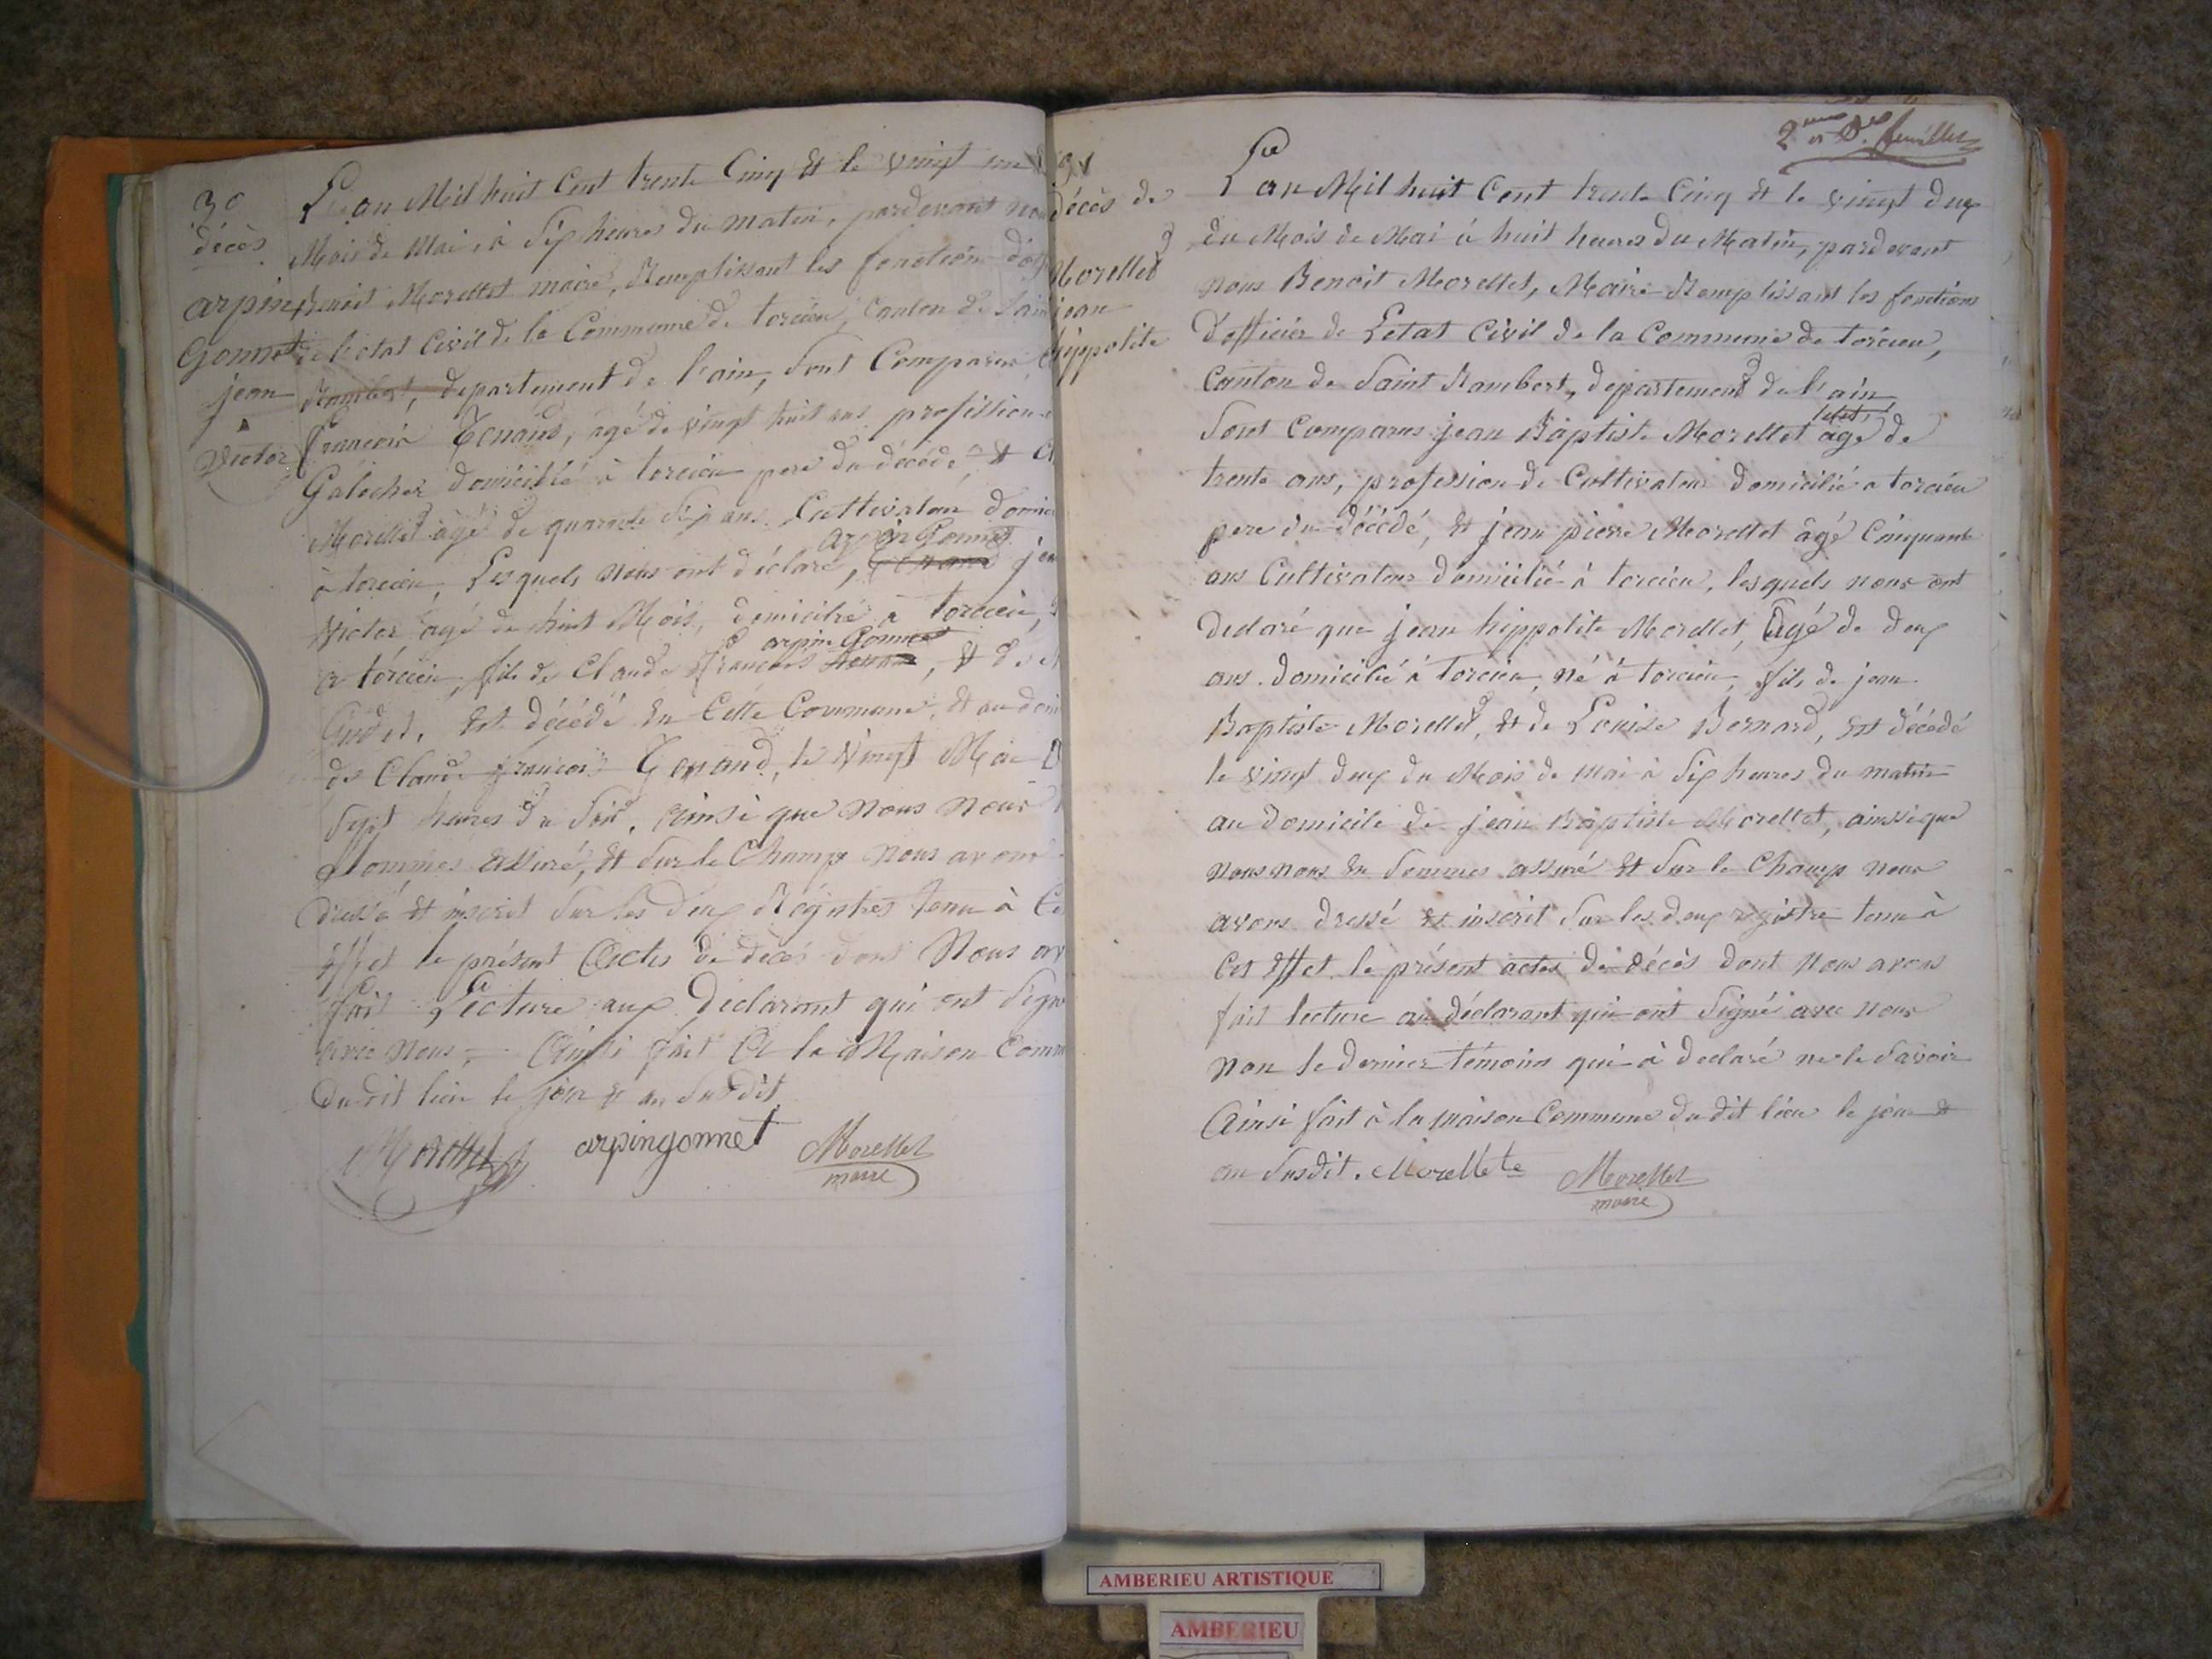 30
décès
arpin
Gonnet
jean
Victor
L'an Mil huit Cent trente Cinq Et le vingt un
Mois de Mai, à Six heures du matin, pardevant nou
Benoit Morellet maire, Remplissant les fonction d'off
de l'etat Civil de la Commune de torcieu, canton de Sain
Rambert, departement de l'ain, Sont Comparus, C
françois Genand, agé de vingt huit ans profession
Galocher domicilié à torcieu pere du décédé, Et
Morellet agé de quarante Six ans Cultivateur domi
arpin Gonnet
à torcieu, Lesquels nous ont déclaré, Genand jea
Victor agé de huit Mois, domicilié à torcieu,
arpin Gonnet
a torcieu, fils de Claude françois Genand, Et de
Godet, Est décédé En Cette Commune, Et au dom
de Claude françois Genand, le Vingt Mai
Sept heures du Soir, ainsi que Nous Nous
Sommes assuré, Et Sur le Champ Nous avons
dressé Et inscrit Sur les deux Régistres tenu à Ce
Effet le présent Actes de décès dont Nous av
fait Lecture aux Déclarant qui ont Sign
avec Nous, Ainsi fait A la Maison Comm
Dudit lieu le jour et an Susdit
Morellet arpingonnet Morellet
maire
2me et Der. feuillet
décès de
Morellet
jean
hippolite
L'an Mil huit Cent trente Cinq Et le vingt deux
du Mois de Mai à huit heures du Matin, pardevant
Nous Benoit Morellet, Maire Remplissant les fonctions
D'officier de L'etat Civil de la Commune de torcieu,
Canton de Saint Rambert, departement de l'ain
Sont Comparus jean Baptiste Morellet agé de
trente ans, profession de Cultivateur domicilié a torcieu
pere du décédé, Et jean pierre Morellet âgé Cinquante
ans Cultivateur domicilié à torcieu, lesquels nous ont
Declaré que jean hippolite Morellet, Agé de deux
ans. domicilié à torcieu, né à torcieu, fils de jean
Baptiste Morellet, Et de Louise Bernard, Est décédé
le vingt deux du Mois de mai à Six heures du matin
au domicile de jean Baptiste Morellet, ainsi que
Nous nous En Sommes assuré Et Sur le Champ Nous
avons dressé Et inscrit Sur les deux registre tenu à
Cet Effet le présent actes de décès dont Nous avons
fait lecture au déclarant qui ont Signé avec Nous
Non le dernier témoins qui à declaré ne le Savoir
Ainsi fait à la maison Commune du dit lieu le jour Et
an Susdit. Morellete Morellet
maire
AMBERIEU ARTISTIQUE
AMBERIEU